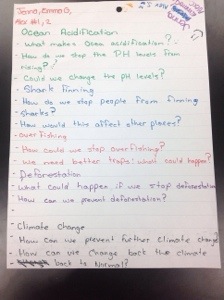 Jenna, Emma G,
Ocean Acidification
- What makes Ocean acidification?
- How do we stop the PH levels from
rising?
- Could we change the pH levels?
- Shark Finning
- How do we stop people from finning
sharks?
- How would this affect other places?
- overfishing
- How could we stop overfishing?
- We need better traps! What could happen?
- Deforestation
- What could happen if we stop deforestation
- How can we prevent deforestation?
-
-
Climate Change
- How can we prevent further climate change?
- How can we change back the climate
back to Normal?